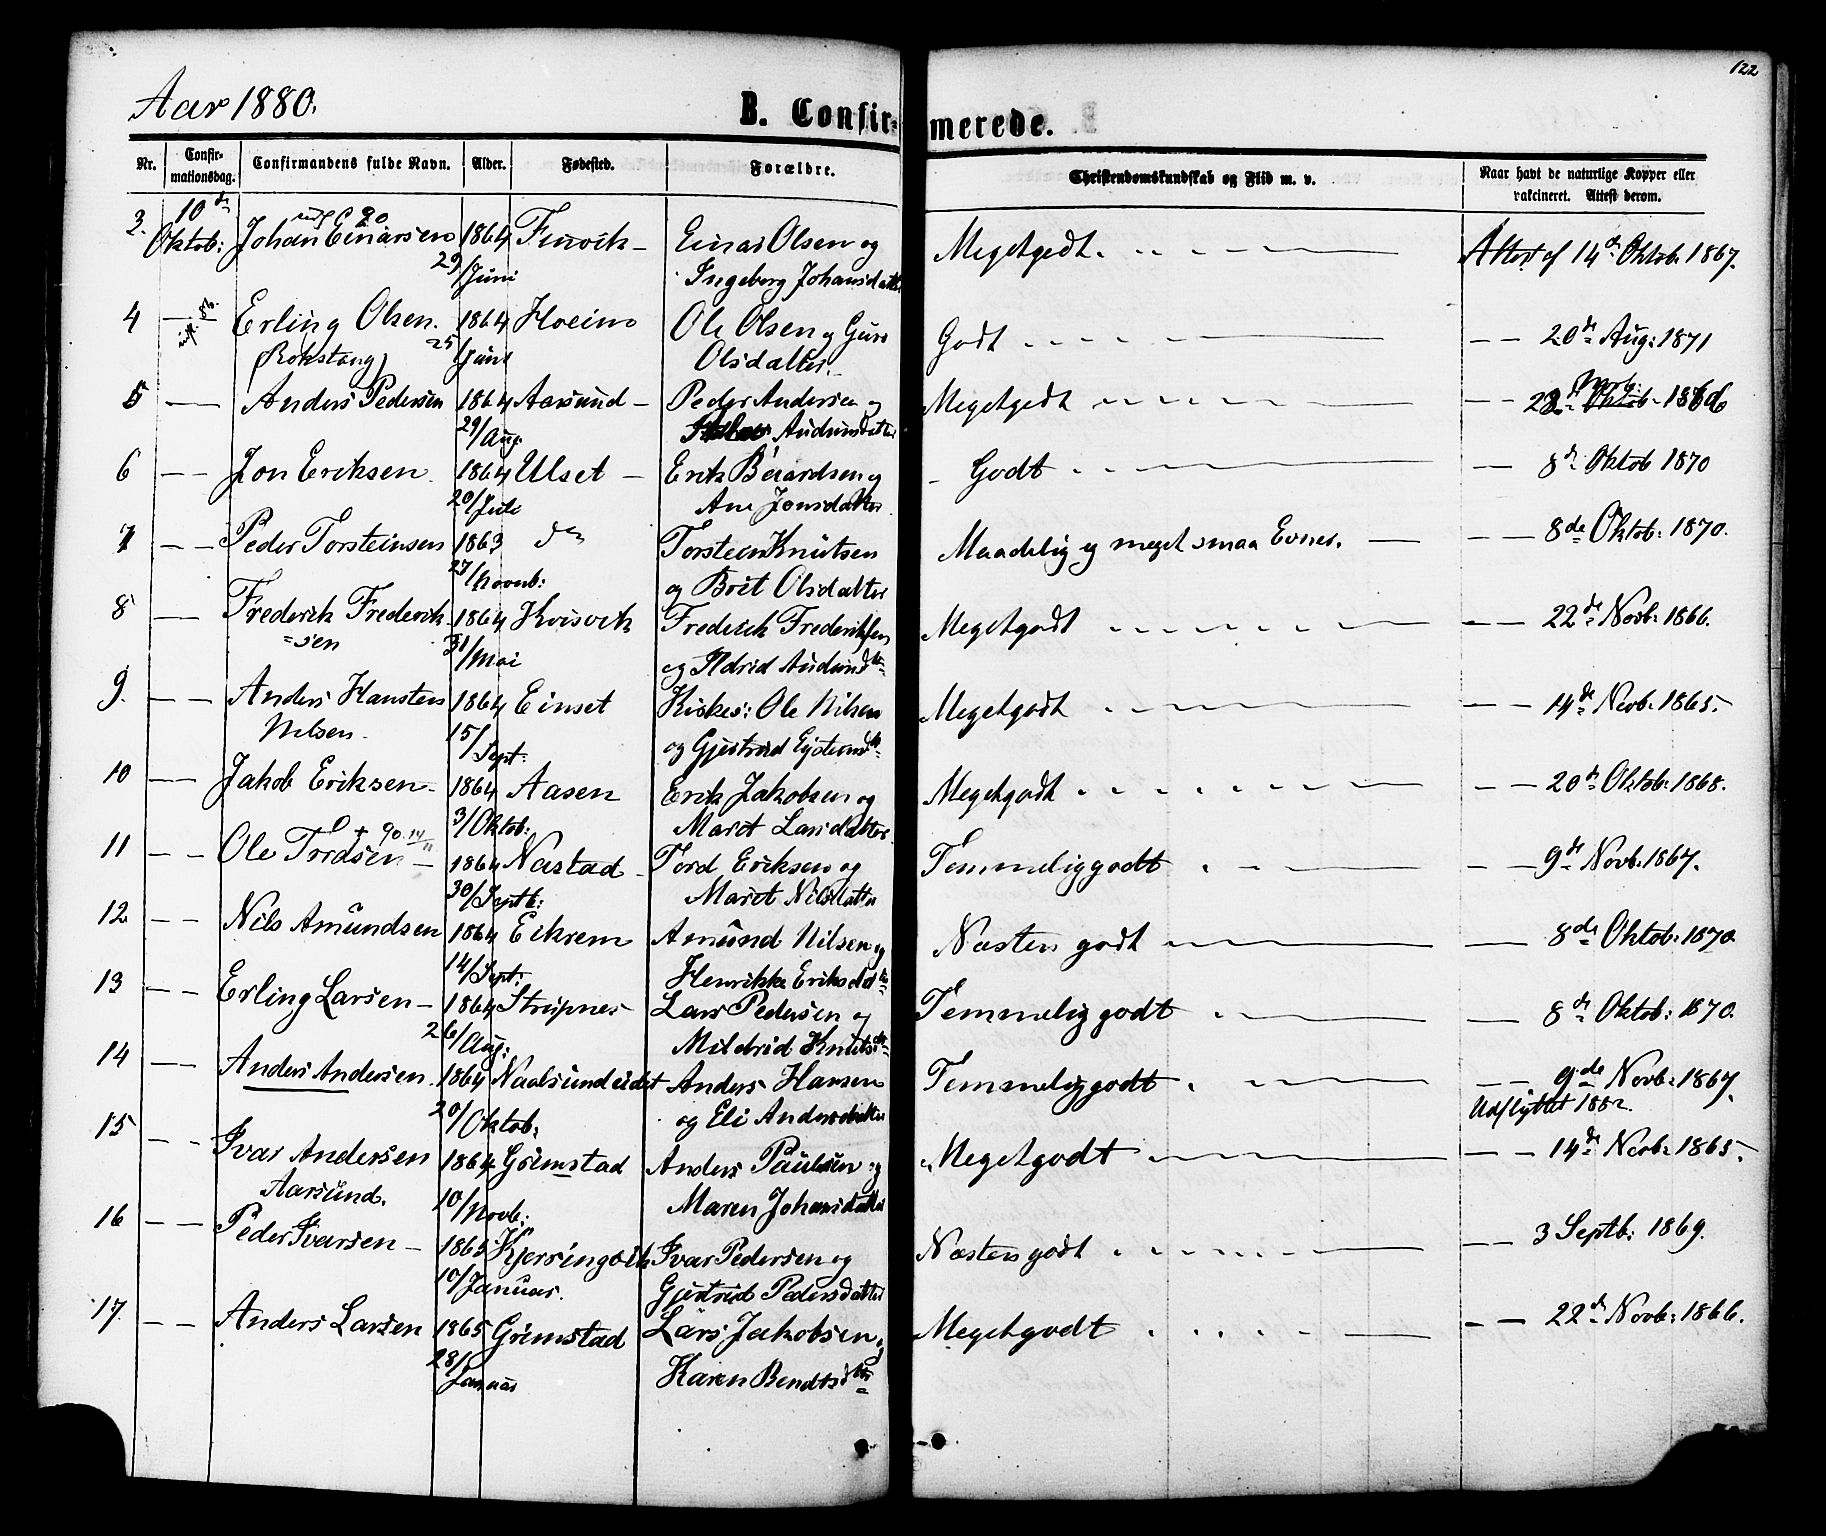 122
Aar 1880.
B. Confirmerede.
Nr. Confirmationsdag. Confirmandens fulde Navn. Alder. Fødested. Forældre. Christendomskundskab og Flid m. v. Naar havt de naturlige Kopper eller vakcineret. Attest derom.
3. 10de Oktob: Johan Einarsen 1864 Einar Olsen og Megetgodt. 14de Oktob. 1867.
29/Juni Ingeborg Johansdatter
4 — Erling Olsen. 1864 Hoeim Ole Olsen og Guri Godt — — 20de Aug: 1871
(Rokstang) 25/Juni Olsdatter.
5 — Anders Pedersen 1864 Aarsund — Peder Andersen og Megetgodt — — Novb: 1866
29/Aug. Audunsdatter
6 — — Jon Eriksen. 1864 Ulset — Erik Berardsen og Godt — 8de Oktob 1870
20/Juli Ane Jonsdatter
7 — — Peder Torsteinsen 1863 do Torstein Knutsen Maadelig og meget smaa Evner. — — — 8de Oktob: 1870.
27/Novemb: og Brit Olsdatter
8 — — Frederik Frederik- 1864 Kvisvik Frederik Frederiksen Megetgodt — — 22de Novb: 1866.
=sen 31/Mai og Ildrid Audunsd=
9. — — Anders Hansten 1864 Einset Kirkes: Ole Nilsen Megetgodt — — 14de Novb. 1865.
Nilsen. 15/Sept: og Gjertrud
10 — — Jakob Eriksen — 1864 Aasen Erik Jakobsen og Megetgodt — — 20de Oktob: 1868.
3/Oktob: Marit Larsdatter
11 — — Ole Tordsen — + 90 14/11 1864 Nastad — Tord Eriksen og Temmeliggodt — — 9de Novb. 1867.
30/Septb: Marit Nilsdatter
12 — — Nils Amundsen 1864 Eikrem Amund Nilsen og Næsten godt — 8de Oktob: 1870
14/Sept: Henrikke Eriksd=
13 — — Erling Larsen — 1864 Stripnes Lars Pedersen og Temmelig godt — 8de Oktob: 1870.
26/Aug: Mildrid Knuts=
14 — — Anders Andersen. 1864 Naalsundeidet Anders Hansen Temmeliggodt — — 9de Novb: 1867.
20/Oktob: og Eli Andersdatter Udflyttet 1882.
15 — — Ivar Andersen 1864 Grimstad Anders Paulsen og Megetgodt — — 14de Novb: 1865.
Aarsund. 10/Novb: Maren Johansdatter
16 — — Peder Ivarsen — 1865 Kjerringvik Ivar Pedersen og Næsten godt — — 3 Septb: 1869.
10/Januar. Gjertrud Pedersdatter
17. — — Anders Larsen 1865 Grimstad Lars Jakobsen og Megetgodt — — 22de Novb: 1866.
28/Januar Karen Bendtsd=